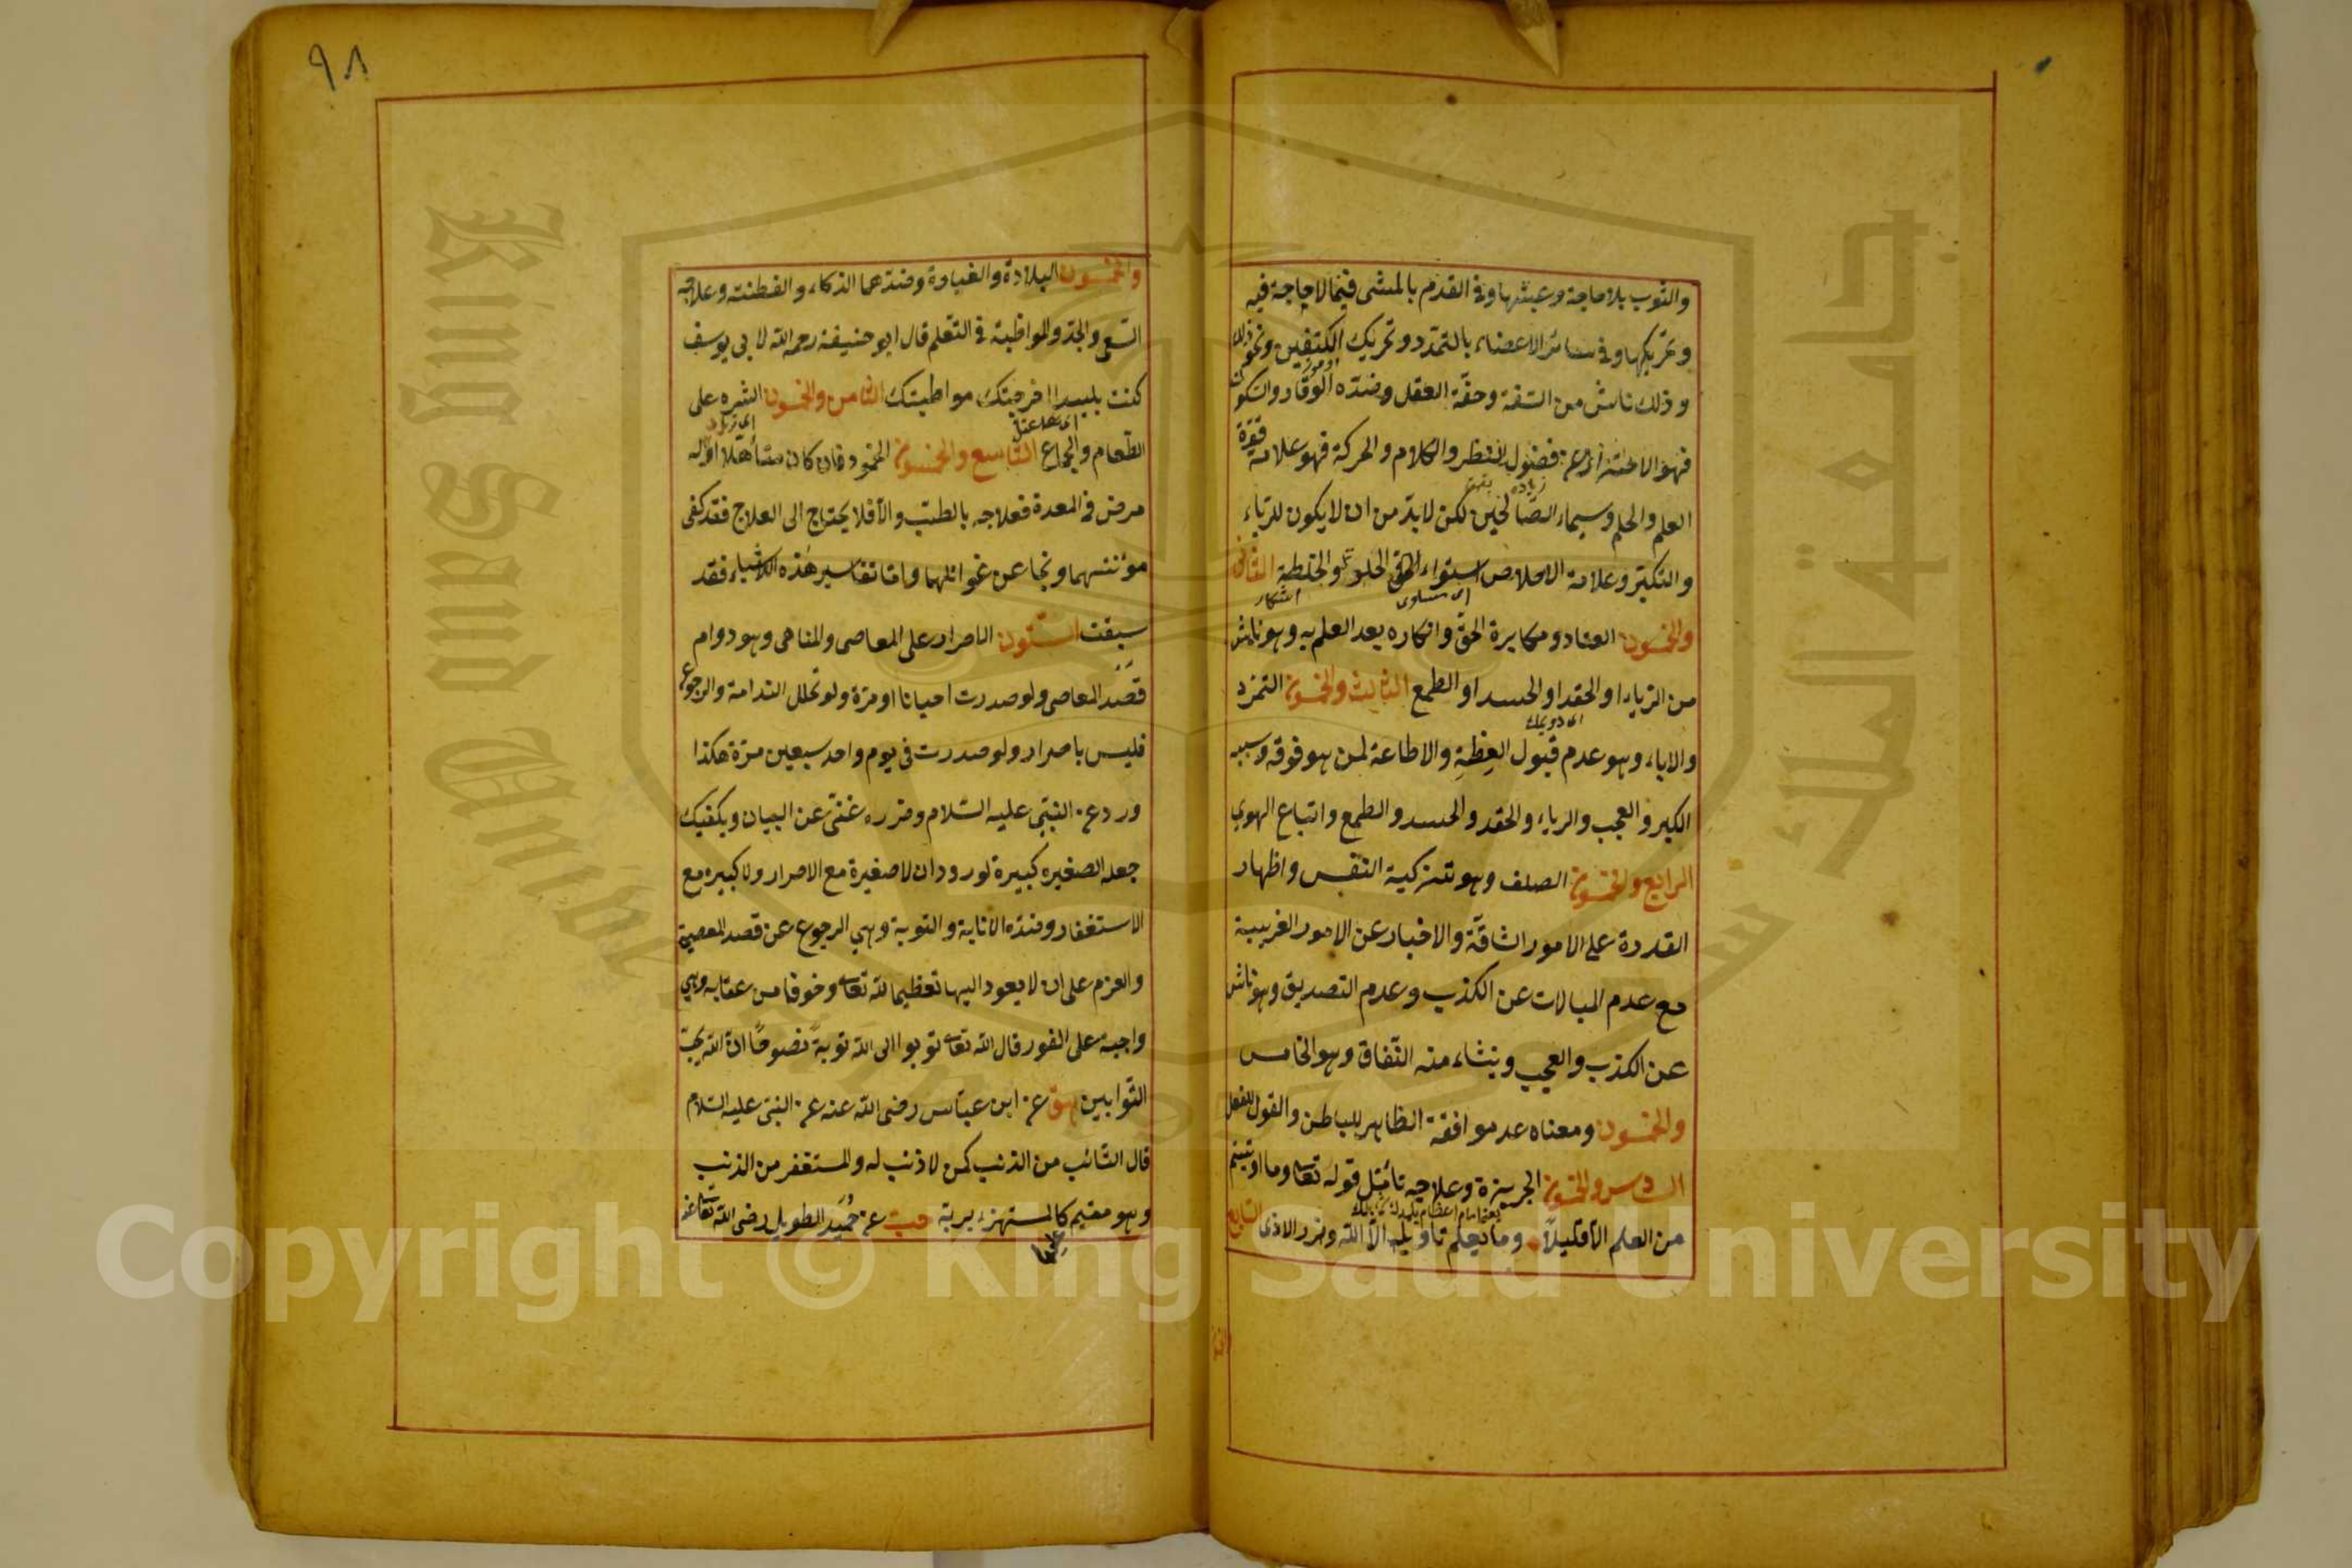 والثوب بلا حاجة وعبثها وفي القدم بالمشي فيما لا حاجة فيه
وتحريكها وفي سائر الاعضاء بالتمدد وتحريك الكتفين ونحو ذلك
وذلك ناش من السفه وخفة العقل وضده الوقار والسكون
فهو الاحتراز عن فضول النظر والكلام والحركة فهو علامة قوة
العلم والحلم وسيماء الصالحين لكن لا بد من ان لا يكون للرياء
والتكبر وعلامة الاخلاص استواء الخلوة والخلطة الثاني
اى مساوى
انكار
والخمسون العناد ومكابرة الحق وانكاره بعد العلم به وهو ناش
من الرياء او الحقد او الحسد او الطمع الثالث والخمسون التمرد
والاباء وهو عدم قبول العظة والاطاعة لمن هو فوقه وسببه
الكبر والعجب والرياء والحقد والحسد والطمع واتباع الهوى
الرابع والخمسون الصلف وهو تزكية النفس واظهار
القدرة على الامور الشاقة والاخبار عن الامور الغريبة
مع عدم المبالات عن الكذب وعدم التصديق وهو ناش
عن الكذب والعجب وينشاء منه النفاق وهو الخامس
والخمسون ومعناه عدم موافقة الظاهر للباطن والقول للفعل
السادس والخمسون الجربزة وعلاجه تأمل قوله تعالى وما اوتيتم
من العلم الا قليلا وما يعلم تاويله الا الله وضرر الاذى السابع
٩٨
والخمسون البلادة والغباوة وضدهما الذكاء والفطنة وعلاجه
السعي والجد والمواظبة في التعلم قال ابو حنيفة رحمه الله لابي يوسف
كنت بليدا اخرجتك مواظبتك الثامن والخمسون الشره على
الطعام والجماع التاسع والخمسون الخمود فان كان متأهلا او له
مرض في المعدة فعلاجه بالطب والا فلا يحتاج الى العلاج فقد كفى
مؤنتهما ونجا عن غوائلهما واما تفاسير هذه الاشياء فقد
سبقت الستون الاصرار على المعاصي والمناهي وهو دوام
قصد المعاصي ولو صدرت احيانا او مرة ولو تخلل الندامة والرجوع
فليس باصرار ولو صدرت في يوم واحد سبعين مرة هكذا
ورد عن النبي عليه السلام وضرره غني عن البيان ويكفيك
جعله الصغيرة كبيرة لورود ان لا صغيرة مع الاصرار ولا كبيرة مع
الاستغفار وضده الانابة والتوبة وهي الرجوع عن قصد المعصية
والعزم على ان لا يعود اليها تعظيما لله تعالى وخوفا من عقابه وهي
واجبة على الفور قال الله تعالى توبوا الى الله توبة نصوحا ان الله يحب
التوابين هق عن ابن عباس رضى الله عنه عن النبي عليه السلام
قال التائب من الذنب كمن لا ذنب له والمستغفر من الذنب
وهو مقيم كالمستهزء بربه حب عن حميد الطويل رضى الله تعالى عنه
King Saud University
جامعة الملك سعود
1957
Copyright © King Saud University